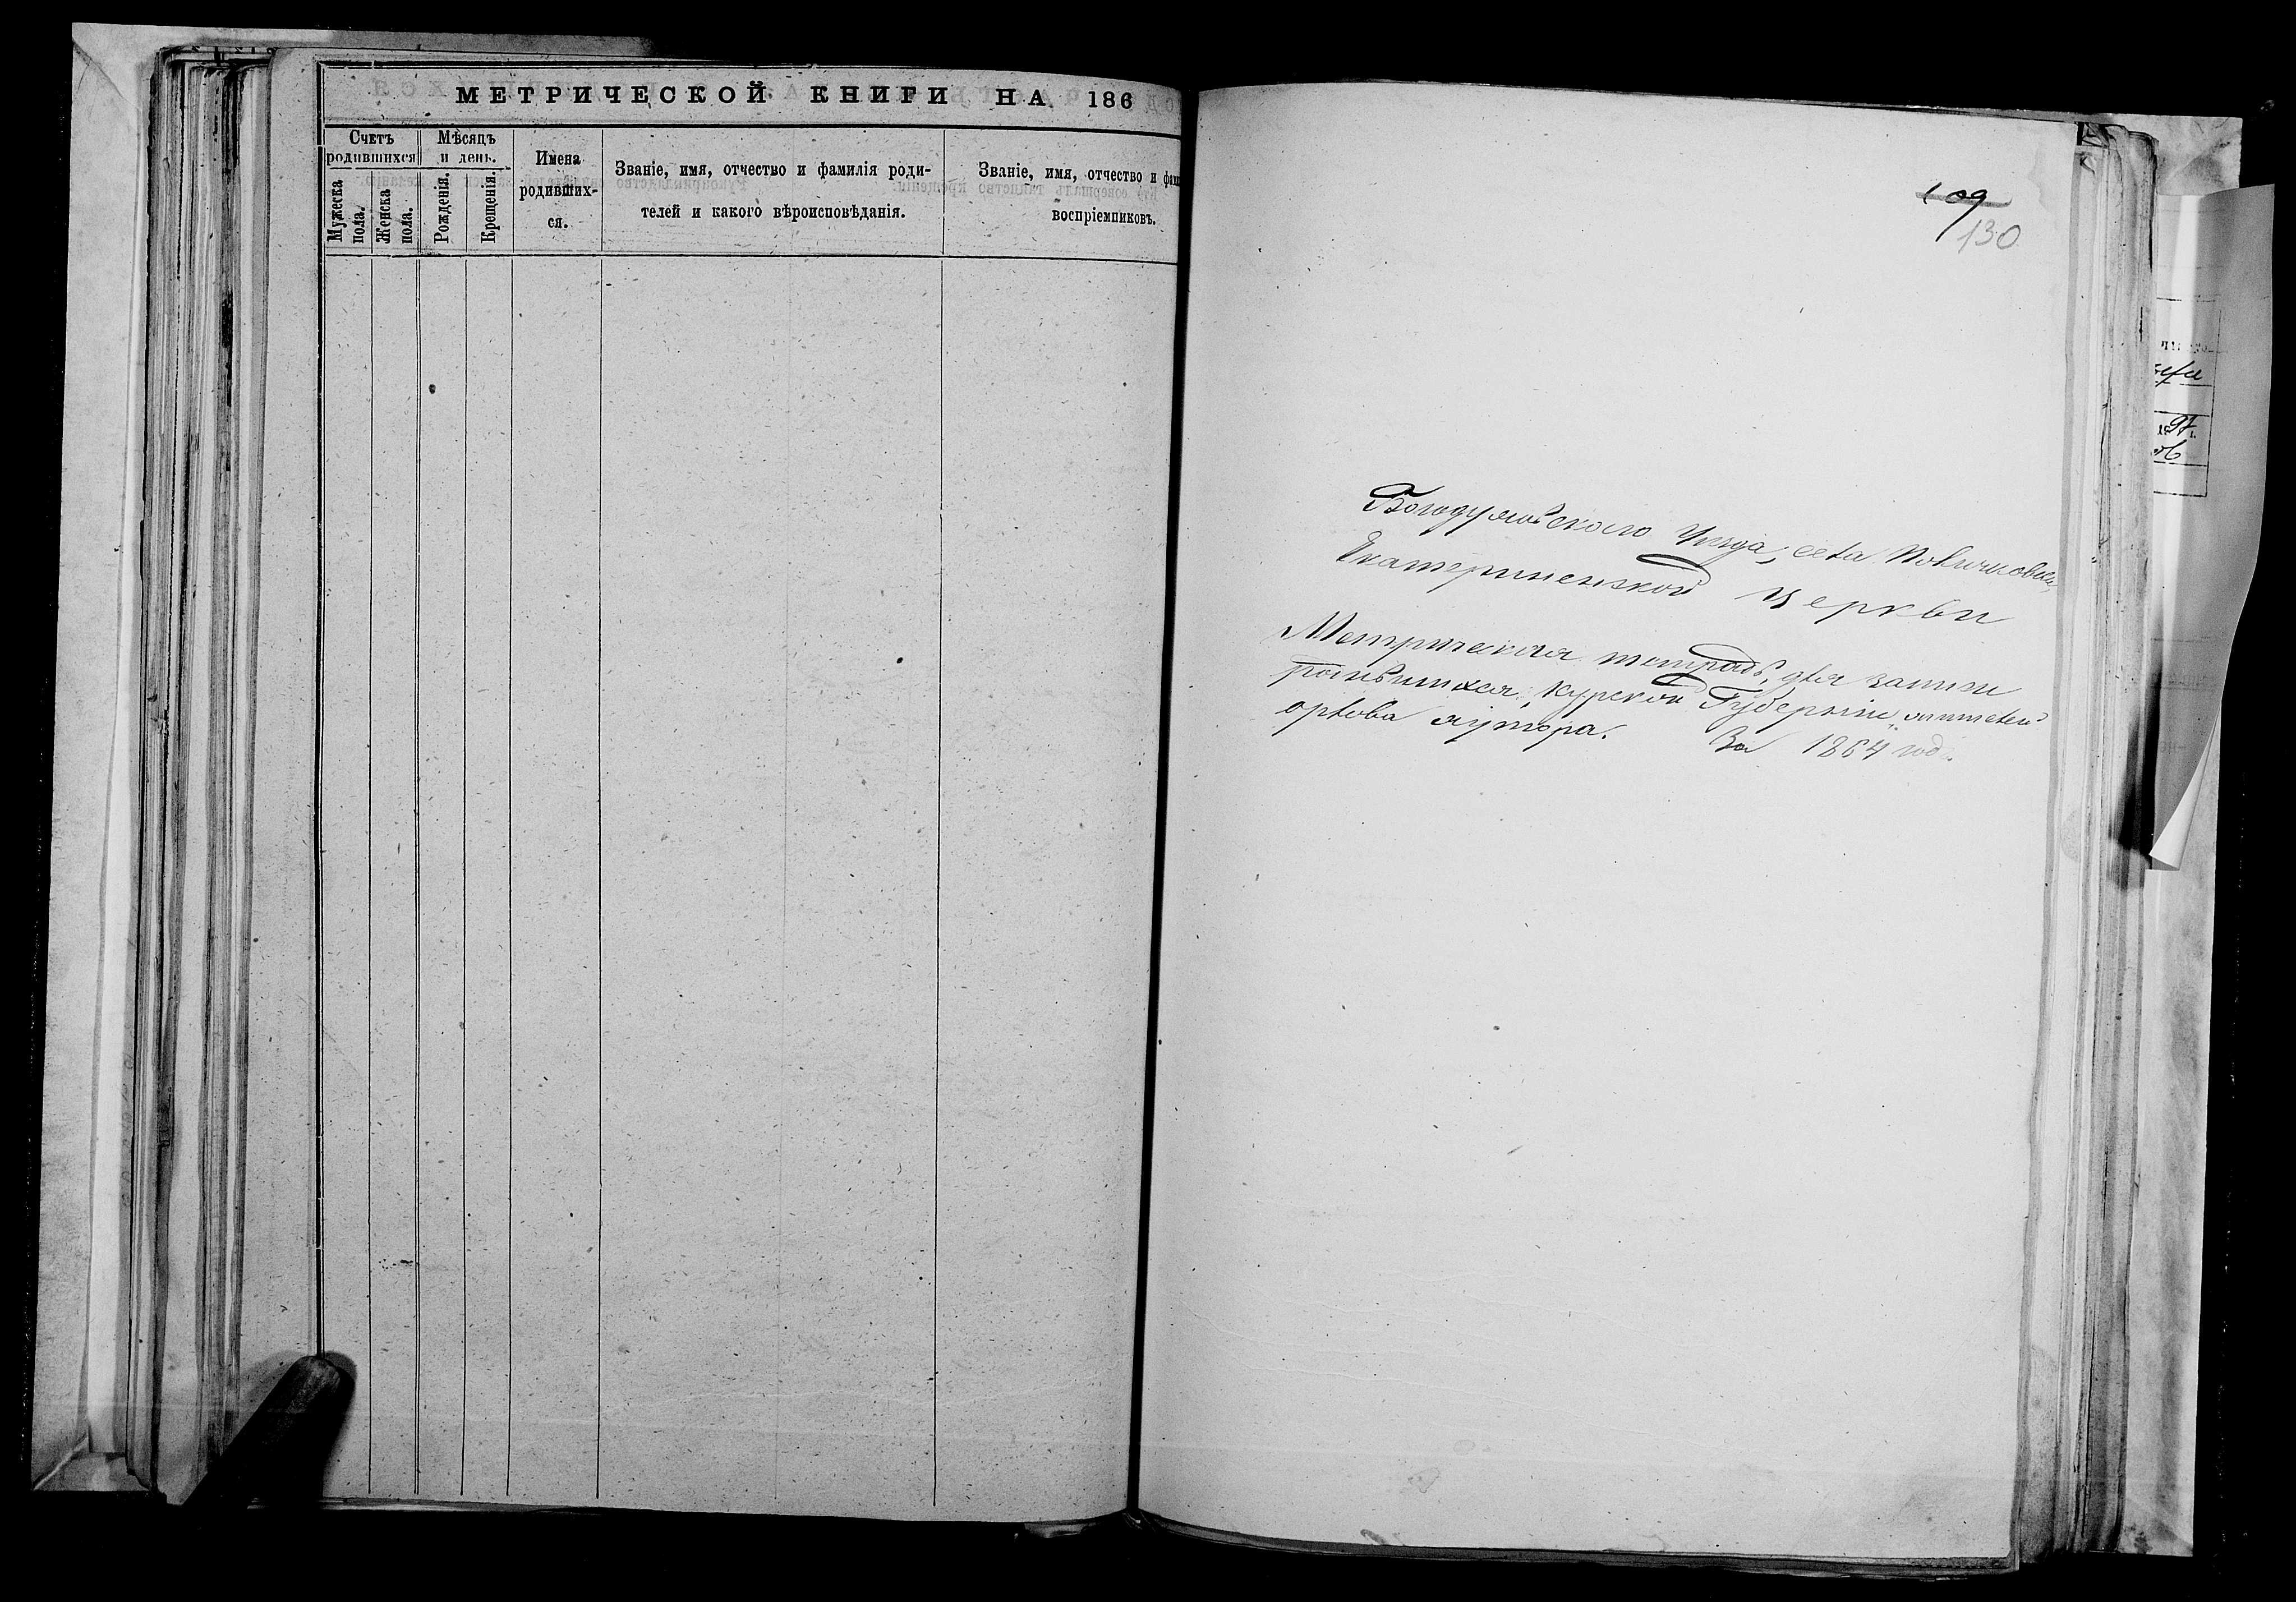 МЕТРИЧЕСКОЙ КНИГИ НА 186
Счетъ родившихся
Мужеска пола.
Женска пола.
Мѣсяцъ и день.
Рожденія.
Крещенія.
Имена родившихся.
Званіе, имя, отчество и фамилія родителей и какого вѣроисповѣданія.
Званіе, имя, отчество и фам
воспріемниковъ.
109
130
Богодуховскаго Уѣзда, села
Екатерининской церкви
Метрическая тетрадь, для записи
Курской Губерніи, жителей
орлова хутора. За 1864 годъ.